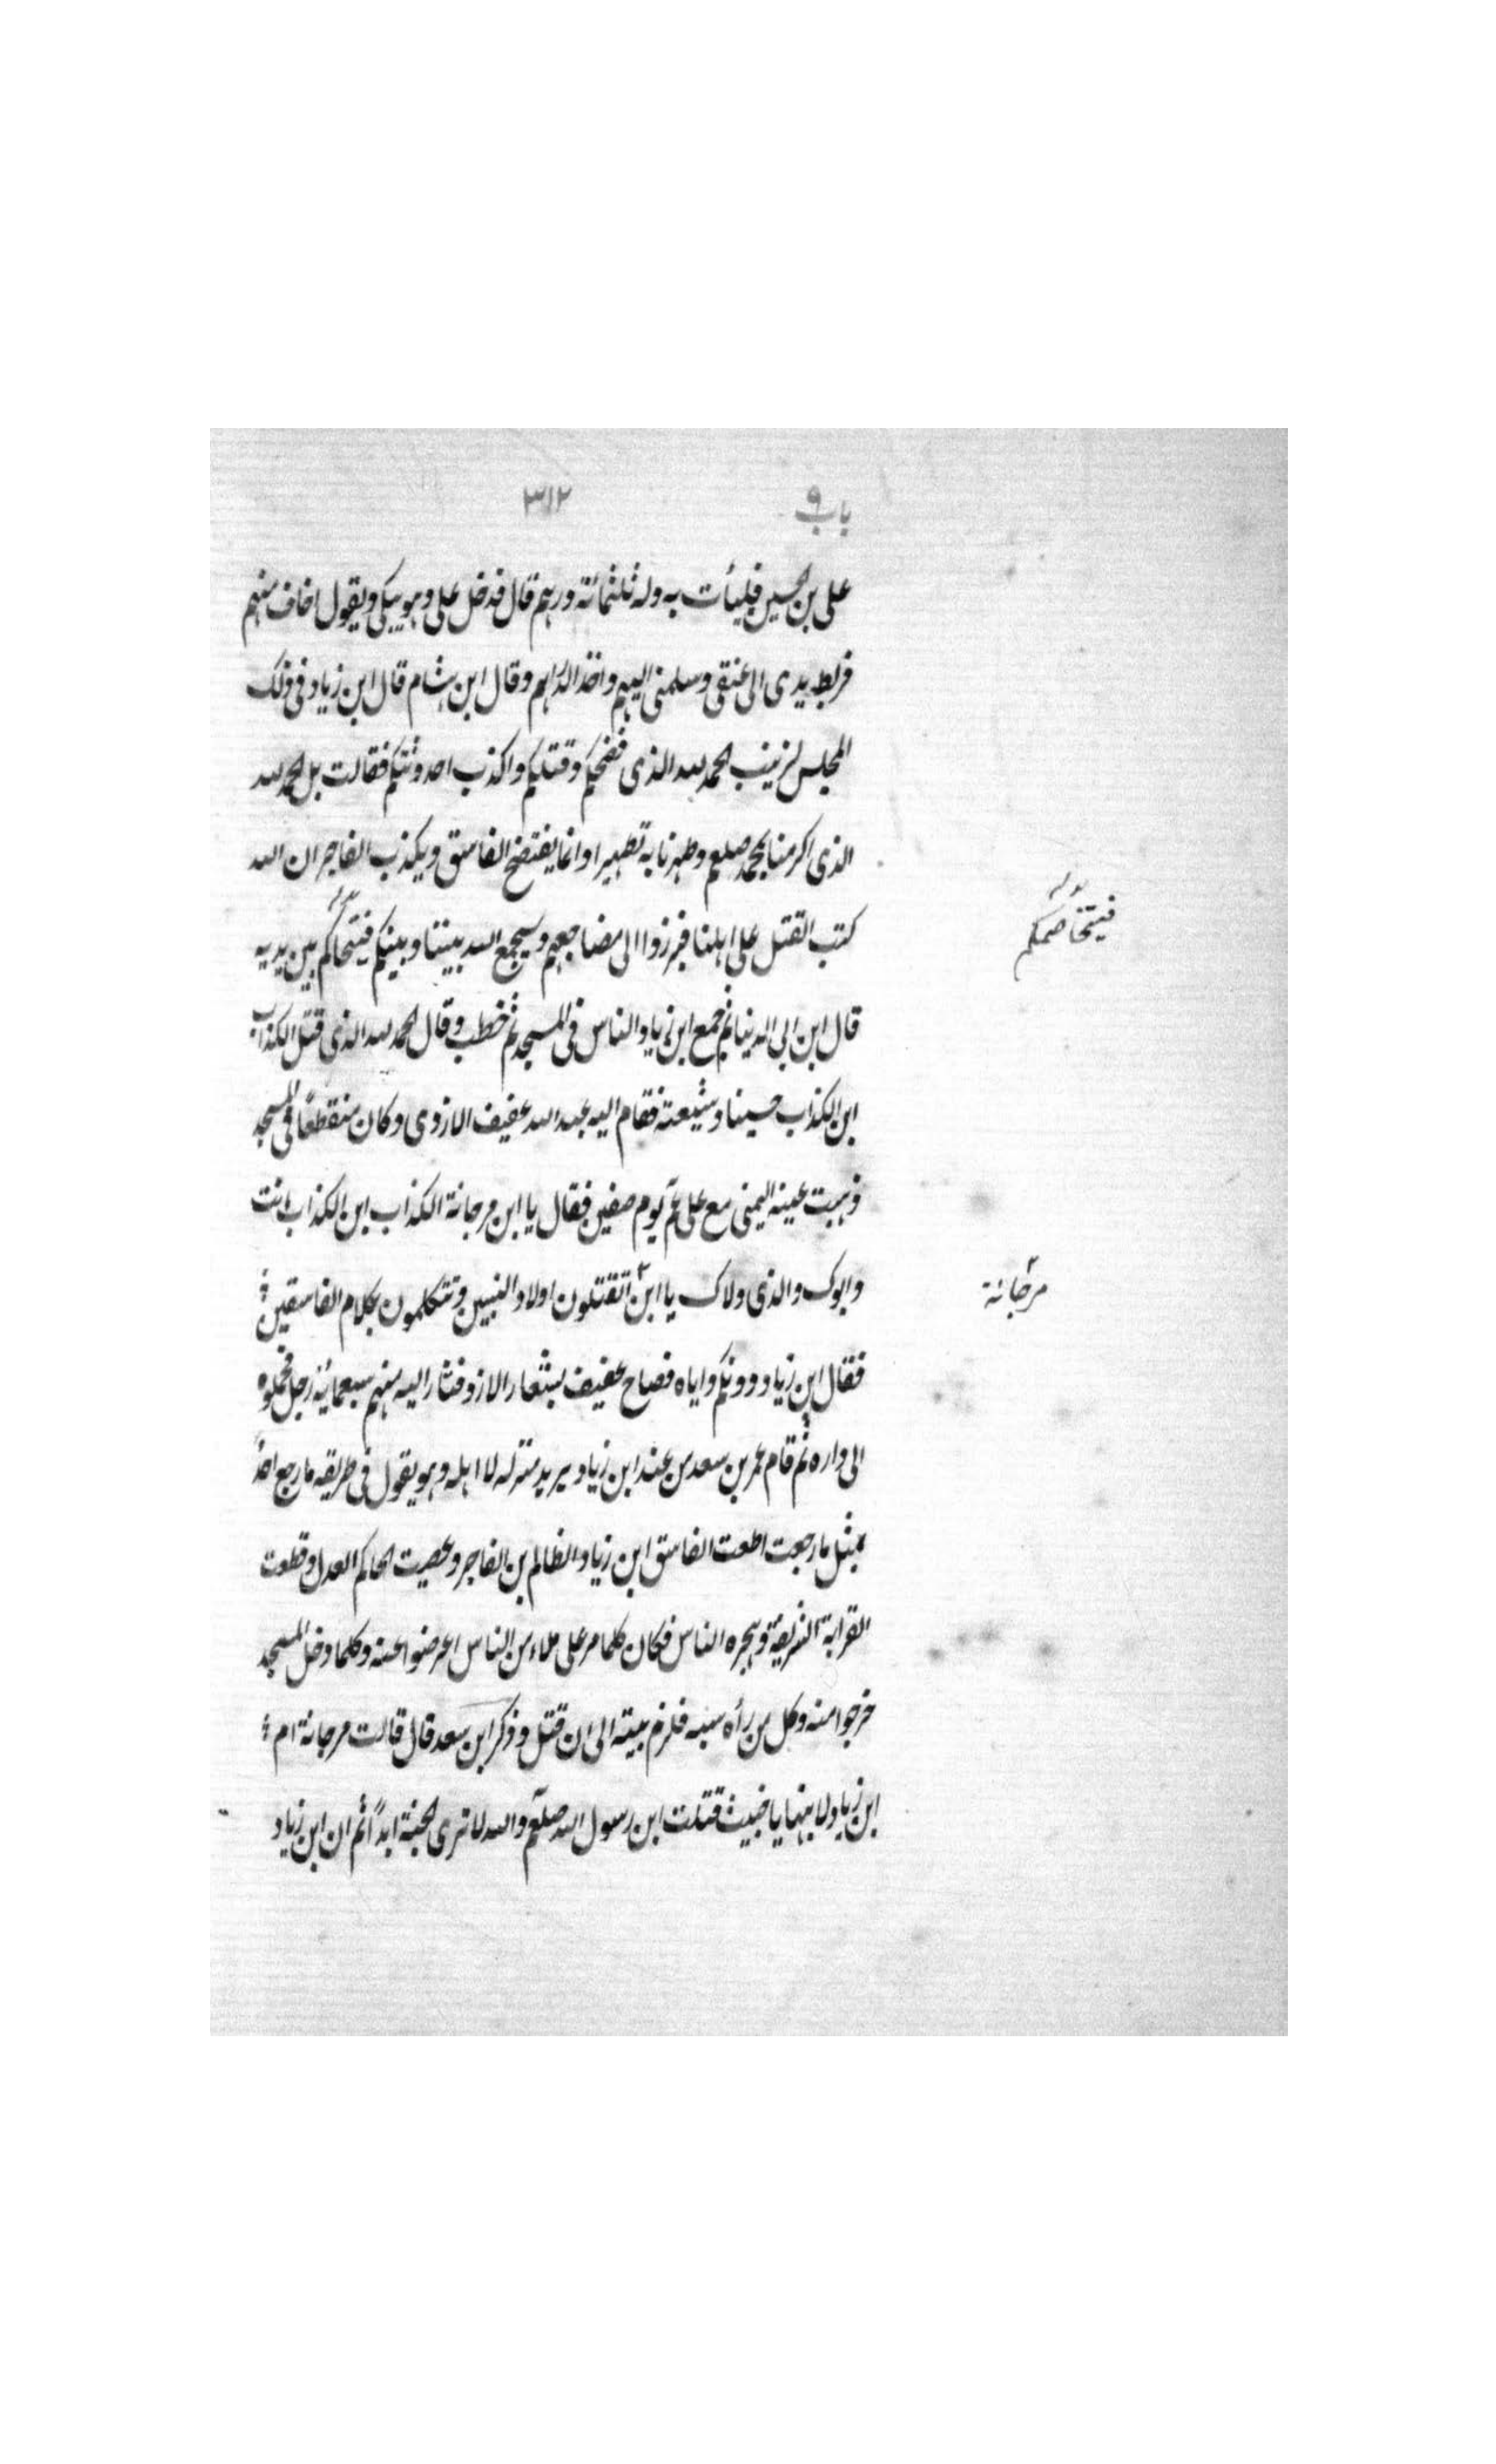 باب ٩ ٣١٢
على بن الحسين فليأت به وله ثلثمائة درهم قال فدخل على وهو يبكى ويقول اخاف منهم
فربط يدى الى عنقى وسلمنى اليهم واخذ الدراهم وقال ابن هشام قال ابن زياد فى ذلك
المجلس لزينب الحمد لله الذى فضحكم وقتلكم واكذب احدوثتكم فقالت بل الحمد لله
الذى اكرمنا بمحمد صلعم وطهرنا به تطهيرا وانما يفتضح الفاسق ويكذب الفاجر ان الله
كتب القتل على اهلنا فبرزوا الى مضاجعهم وسيجمع الله بيننا وبينكم فيتحاكم بين يديه
فيتخاصمكم
قال ابن ابى الدنيا ثم جمع ابن زياد الناس فى المسجد ثم خطب وقال الحمد لله الذى قتل الكذاب
ابن الكذاب حسينا وشيعته فقام اليه عبد الله عفيف الازدى وكان منقطعًا فى المسجد
ذهبت عينه اليمنى مع على عم يوم صفين فقال يا ابن مرجانة الكذاب ابن الكذاب انت
وابوك والذى ولاك يا ابن اتقتلون اولاد النبيين وتتكلمون بكلام الفاسقين
مرجانة
فقال ابن زياد دونكم واياه فصاح عفيف بشعار الازد فثار اليه منهم سبعمائة رجل فحملوه
الى داره ثم قام عمر بن سعد من عند ابن زياد يريد منزله لا اهله وهو يقول فى طريقه ما رجع احدٌ
بمثل ما رجعت اطعت الفاسق ابن زياد الظالم بن الفاجر وعصيت الحاكم العدل وقطعت
القرابة الشريفة وهجره الناس فكان كلما مر على ملاء من الناس اعرضوا عنه وكلما دخل المسجد
خرجوا منه وكل من رأه سبه فلزم بيته الى ان قتل وذكر ابن سعد قال قالت مرجانة ام
ابن زياد لابنها يا خبيث قتلت ابن رسول الله صلعم والله لا ترى الجنة ابدًا ثم ان ابن زياد